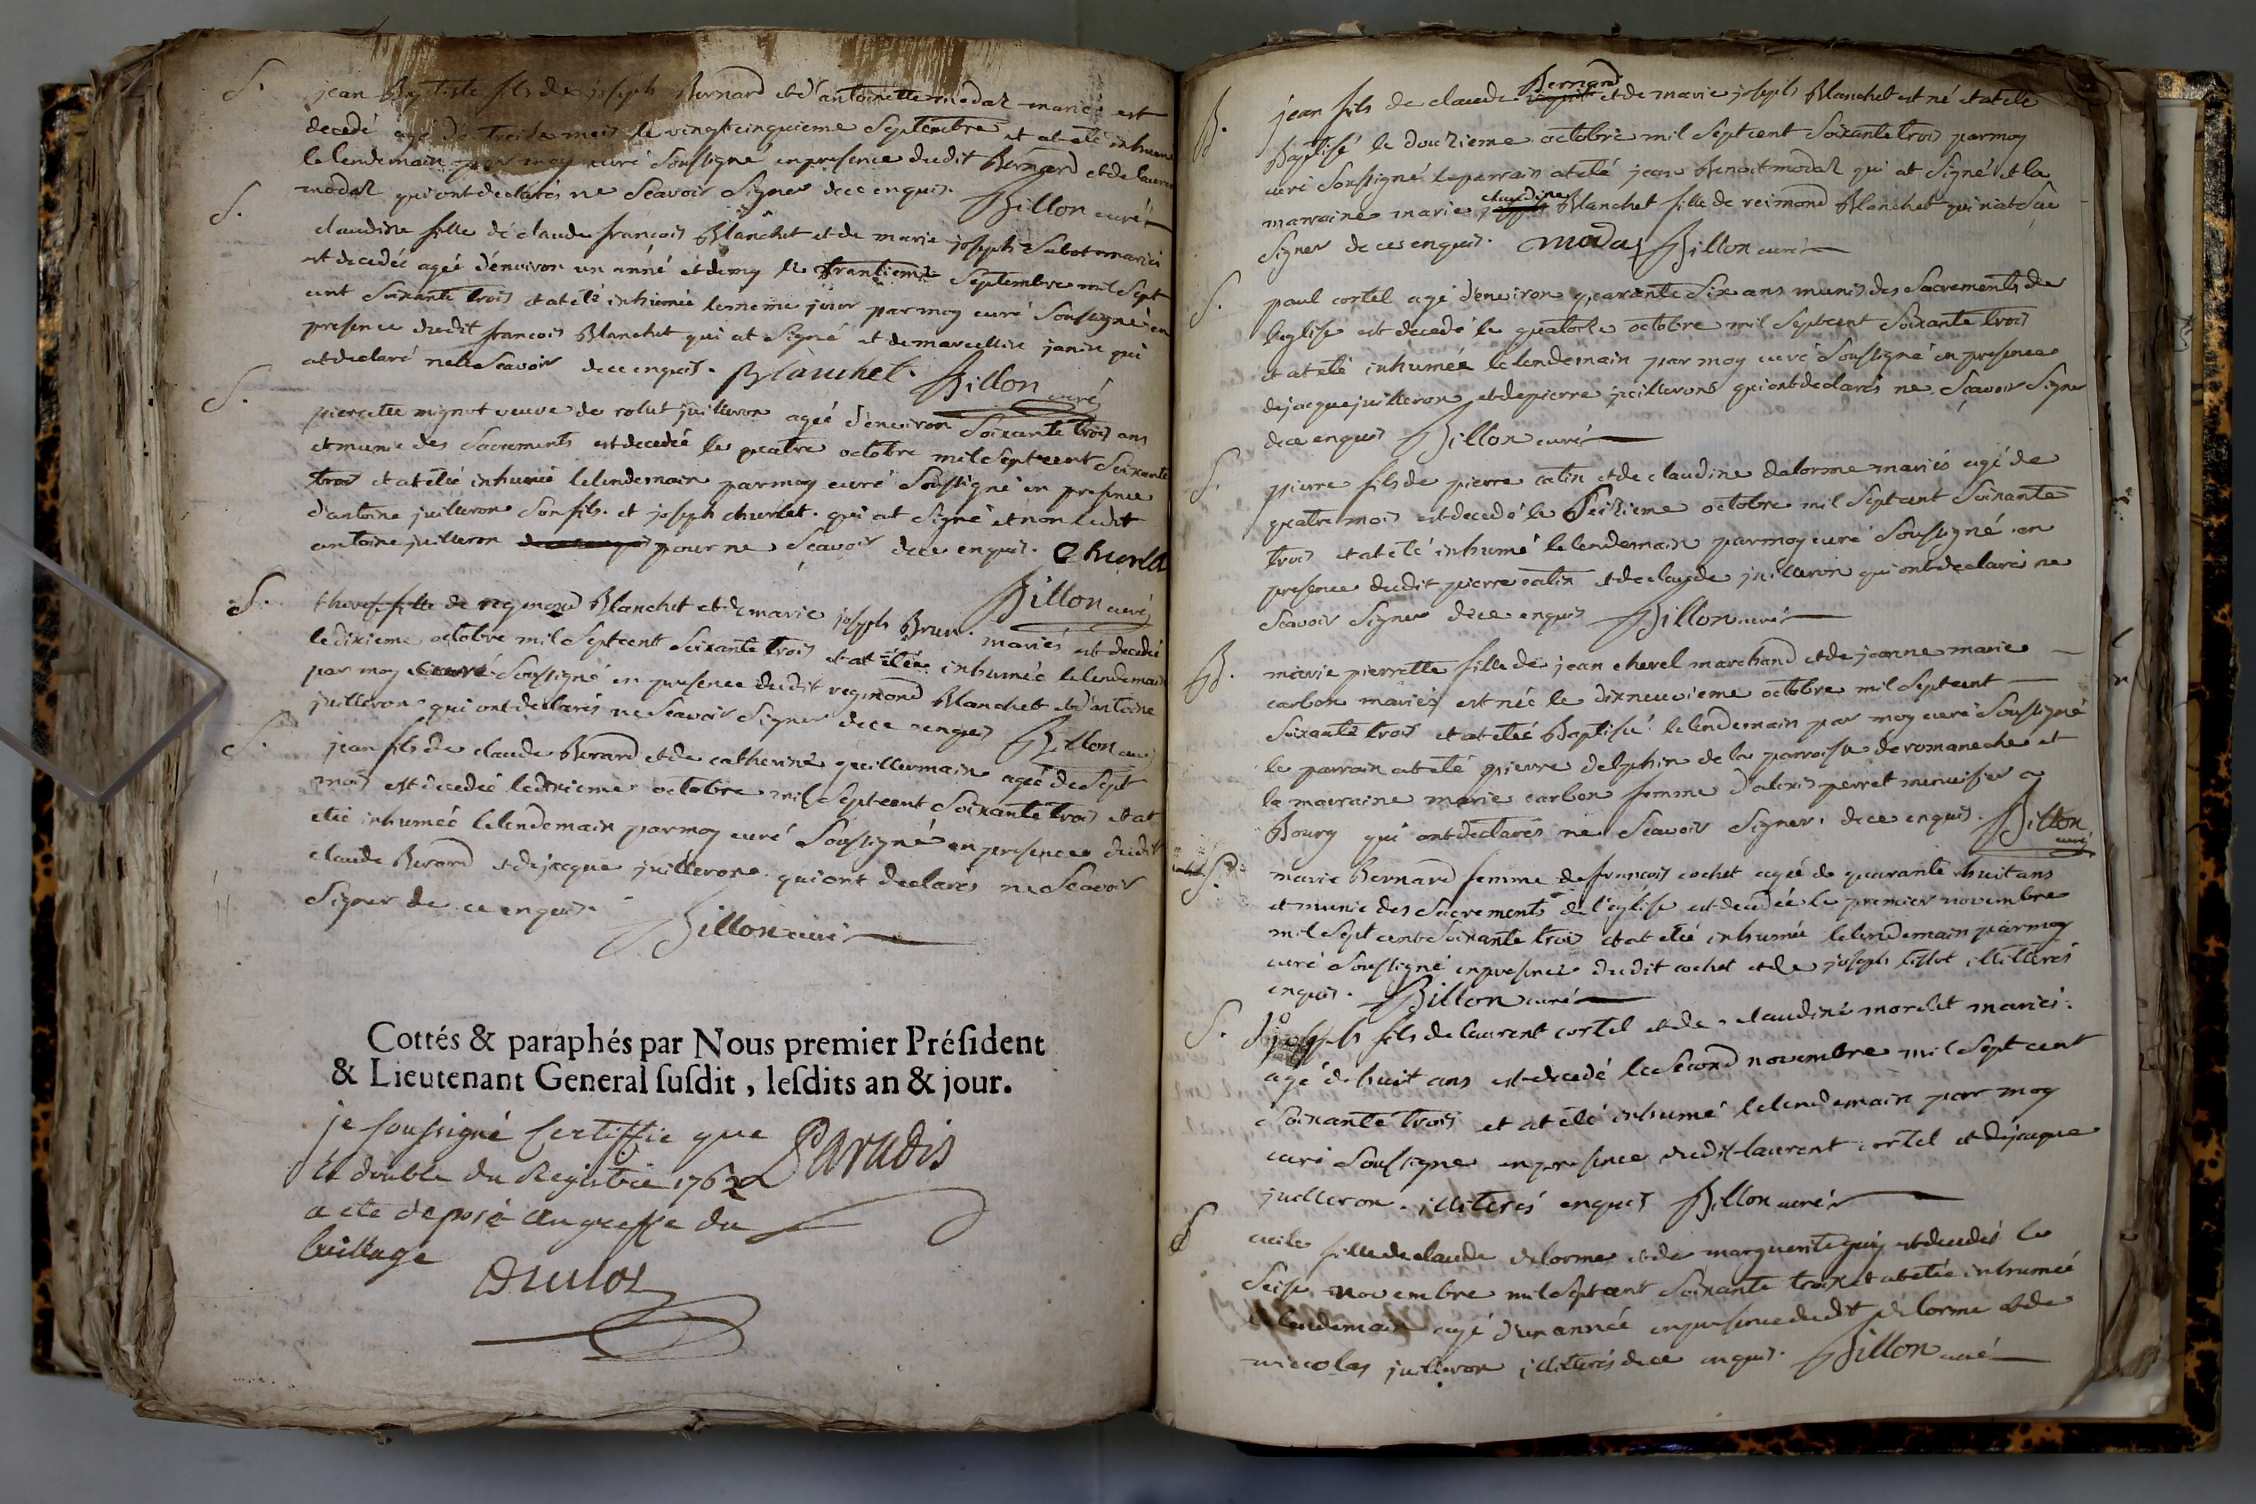 S. jean Baptiste fils de joseph Bernard et d'antoinette modas mariés est
decedé agé de treile mois le vingtcinquieme Septembre et at eté inhumé
le lendemain par moy curé Soussigné en presence dudit Bernard et de laurent
modas qui ont declarés ne Scavoir Signer de ce enquis. Billon curé
S. claudine fille de claude francois Blanchet et de marie joseph Sabot mariés
est decedée agée d'environ un anné et demy le trantieme Septembre mil Sept
cent Soixante trois et at eté inhumée le meme jour par moy curé Soussigné en
presence dudit francois Blanchet qui at Signé et de marcellin janin qui
at declaré ne le Scavoir de ce enquis. Blanchet. Billon curé
S. pierrette mignot veuve de rolut juilleron agée d'environ Soixante trois ans
et munie des Sacrements est decedée le quatre octobre mil Sept cent Soixante
trois et at etée inhumée le lendemain par moy curé Soussigné en presence
d'antoine juilleron Son fils. et joseph churlet. qui at Signé et non ledit
antoine juilleron pour ne Scavoir de ce enquis. Churlet
Billon curé
S. therese fille de regmond Blanchet et de marie joseph Brun mariés est decedée
le dixieme octobre mil Sept cent Soixante trois et at etée inhumée le lendemain
par moy curé Soussigné en presence dudit regmond Blanchet et d'antoine
juilleron qui ont declarés ne Scavoir Signer de ce enquis Billon curé
S. jean fils de claude Berard et de catherine guillermain agée de Sept
mois est decedée le dixieme octobre mil Sept cent Soixante trois et at
etée inhumée le lendemain par moy curé Soussigné en presence dudit
claude Berard et de jacque juilleron qui ont declarés ne Scavoir
Signer de ce enquis. Billon curé
Cottés & paraphés par Nous premier Préſident
& Lieutenant General ſuſdit, leſdits an & jour.
je soussigné Certiffie que Paradis
le double du Registre 1762
a eté déposé au greffe du
bailliage
B. jean fils de claude Bernard et de marie joseph Blanchet est né et at eté
Baptisé le douzieme octobre mil Sept cent Soixante trois par moy
curé Soussigné le parrain at eté jean Benoit modas qui at Signé et la
marraine marie claudine Blanchet fille de reimond Blanchet qui n'at Scu
Signer de ces enquis. modas Billon curé
S. paul cortel agé d'environ quarante Six ans munis des Sacrements de
l'eglise est decedé le quatorze octobre mil Sept cent Soixante trois
et at eté inhumée le lendemain par moy curé Soussigné en presence
de jacque juilleron et de pierre juilleron qui ont declarés ne Scavoir Signer
de ce enquis Billon curé
S. pierre fils de pierre catin et de claudine delorme mariés agé de
quatre mois est decedé le Seizieme octobre mil Sept cent Soixante
trois et at eté inhumé le lendemain par moy curé Soussigné en
presence dudit pierre catin et de claude juilleron qui ont declarés ne
Scavoir Signer de ce enquis Billon curé
B. marie pierrette fille de jean chevel marchand et de jeanne marie
carbon mariés est née le dixneuvieme octobre mil Sept cent
Soixante trois et at etée Baptisée le lendemain par moy curé Soussigné
le parrain at eté pierre delphin de la parroisse de romaneche et
la maraine marie carbon femme d'alexis perret menuisier a
Bourg qui ont declarés ne Scavoir Signer de ce enquis. Billon
curé
S. marie Bernard femme de francois cochet agée de quarante huit ans
et munie des Sacrements de l'eglise est decedée le premier novembre
mil Sept cent Soixante trois et at etée inhumée le lendemain par moy
curé Soussigné en presence dudit cochet et de joseph tissot illiterés
enquis. Billon curé
S. joseph fils de laurent cortel et de claudine morelet mariés.
agé de huit ans est decedé le Second novembre mil Sept cent
Soixante trois et at eté inhumé le lendemain par moy
curé Soussigné en presence dudit laurent cortel et de jacque
juilleron. illiterés enquis Billon curé
S cecile fille de claude delorme et de marguerite guy est decedés le
Seise novembre mil Sept cent Soixante trois et at etée inhumée
le lendemain agé d'un année en presence dudit delorme et de
niecolas juilleron illiterés de ce enquis. Billon curé